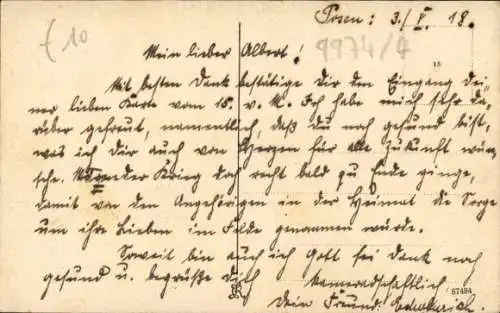 Posen: 3./V. 18.
£ 10
9974/9
Mein lieber Albert!
13
Mit besten Dank bestätige Dir den Eingang dei-
ner lieben Karte vom 15. v. M. Ich habe mich sehr da-
rüber gefreut, namentlich, daß du noch gesund bist,
was ich dir auch von Herzen für alle Zukunft wün-
sche. der Krieg doch recht bald zu Ende ginge,
damit von den Angehörigen in der Heimat die Sorge
um ihre Lieben im Felde genommen würde.
Soweit bin auch ich Gott sei Dank noch
gesund u. begrüße Dich kameradschaftlich
67494
Dein Freund: